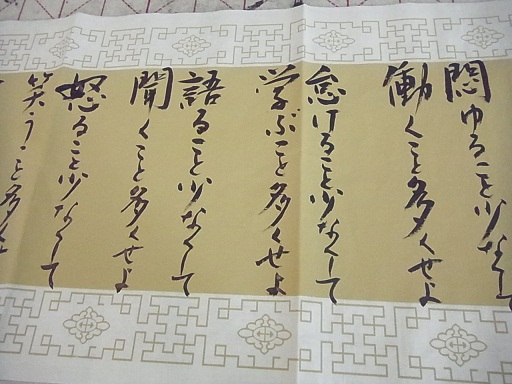 悶ゆること少なくして
働くこと多くせよ
怠けること少なくして
学ぶこと多くせよ
語ること少なくして
聞くこと多くせよ
怒ること少なくして
笑うこと多く